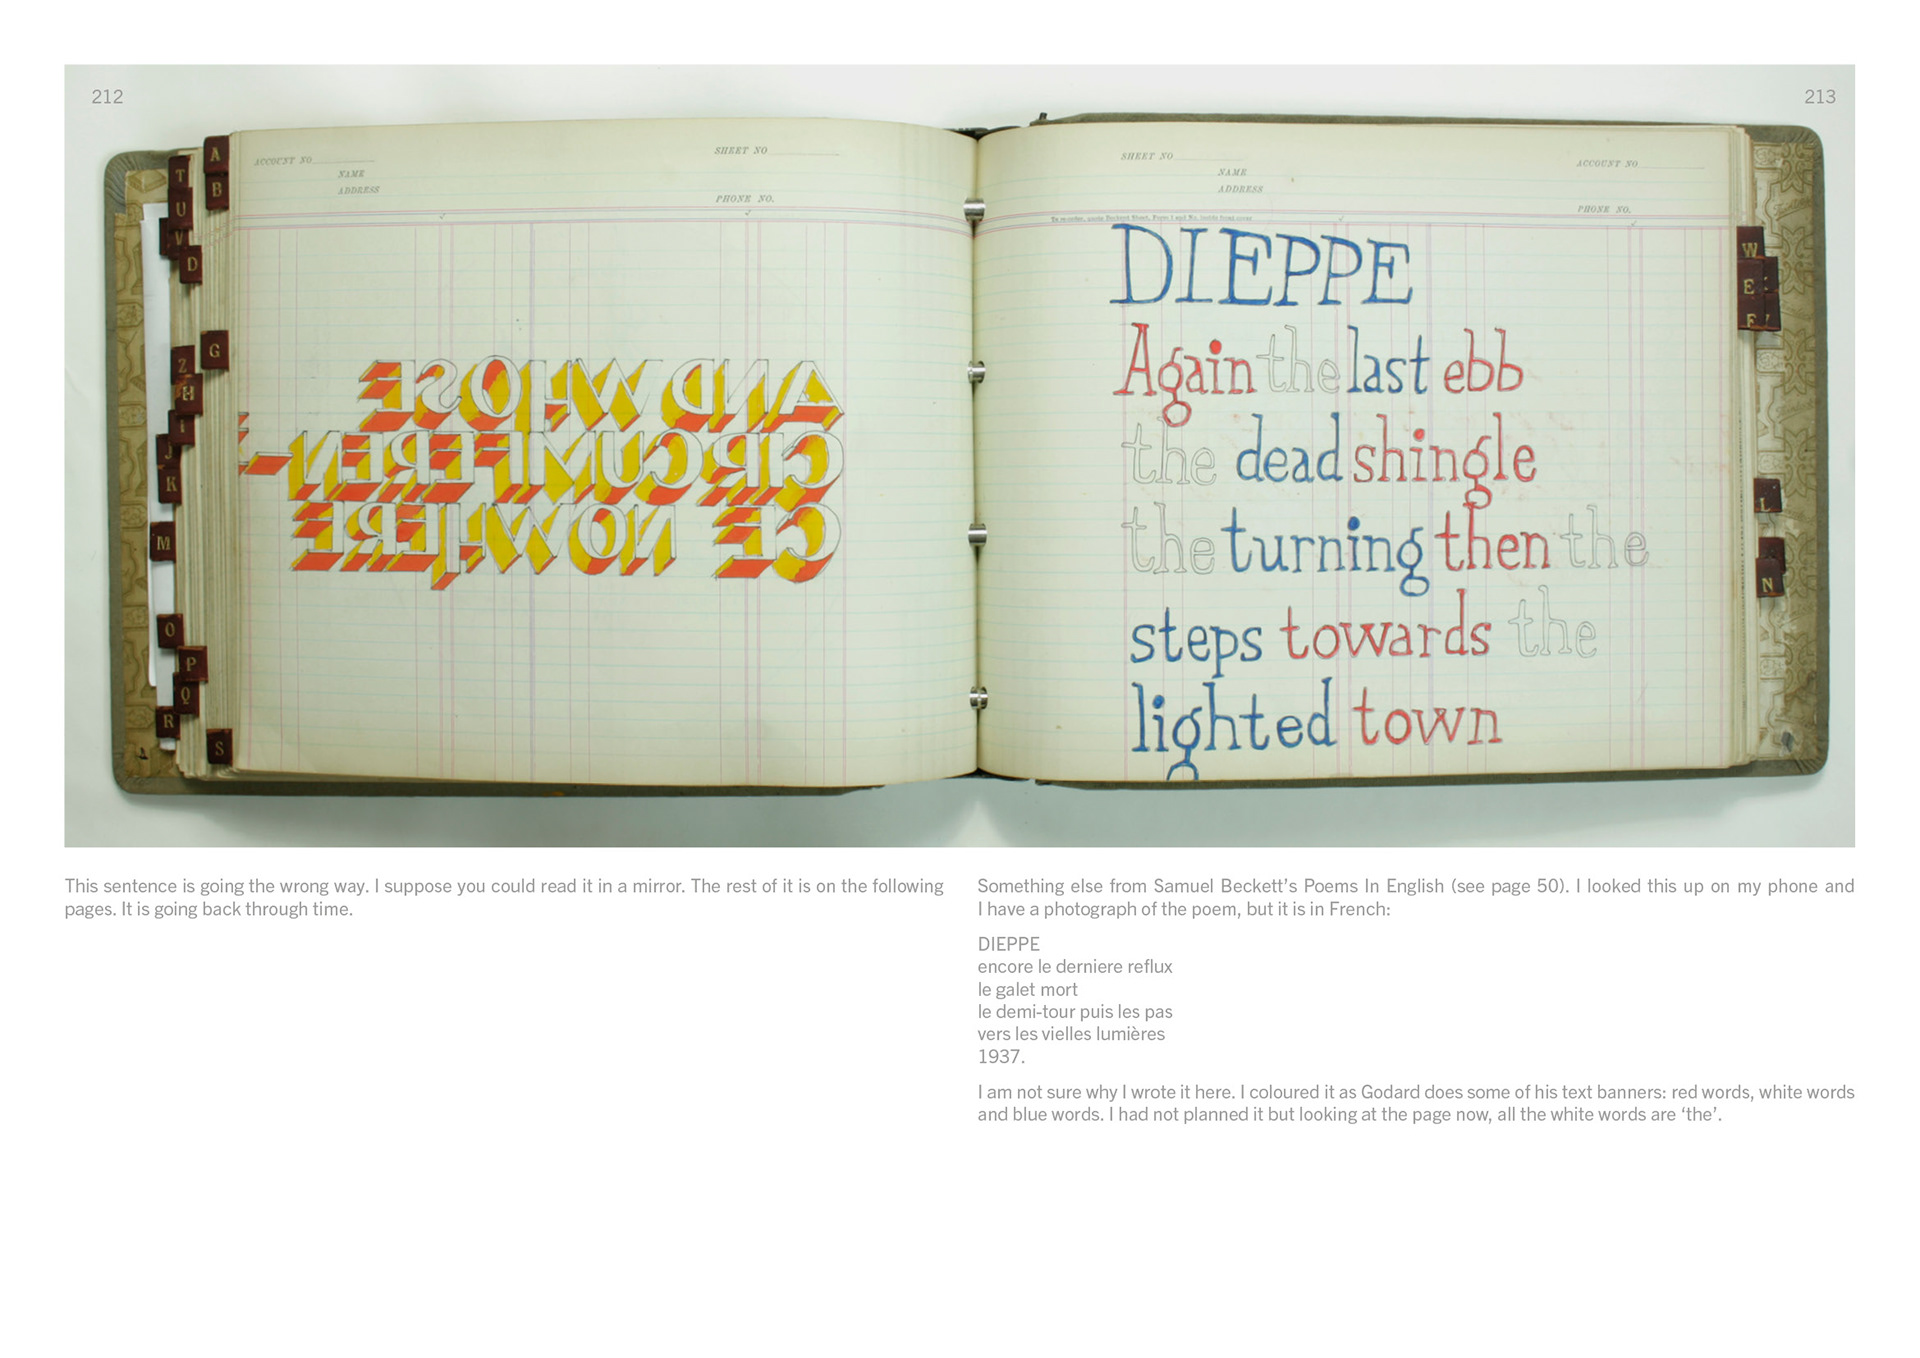 212
213
A
B
T
U
V
D
G
Z
H
I
J
K
M
O
P
Q
R
S
ACCOUNT NO
SHEET NO
NAME
ADDRESS
PHONE NO.
AND WHOSE
CIRCUMFEREN-
CE NOWHERE
SHEET NO
ACCOUNT NO
NAME
ADDRESS
PHONE NO.
DIEPPE
Again the last ebb
the dead shingle
the turning then the
steps towards the
lighted town
W
E
F
L
N
This sentence is going the wrong way. I suppose you could read it in a mirror. The rest of it is on the following
pages. It is going back through time.
Something else from Samuel Beckett’s Poems In English (see page 50). I looked this up on my phone and
I have a photograph of the poem, but it is in French:
DIEPPE
encore le derniere reflux
le galet mort
le demi-tour puis les pas
vers les vielles lumières
1937.
I am not sure why I wrote it here. I coloured it as Godard does some of his text banners: red words, white words
and blue words. I had not planned it but looking at the page now, all the white words are ‘the’.